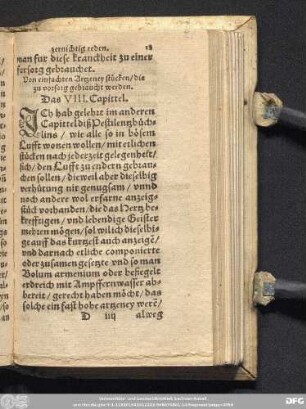 zernichtig reden. 18
man für diese kranckheit zu einer
fürsorg gebrauchet.
Von einfachten Artzeney stücken/ die
zu vorsorg gebraucht werden.
Das VIII. Capittel.
ICh hab gelehrt im anderen
Capittel diß Pestilentzbüch-
lins/ wie alle so in bösem
Lufft wonen wollen/ mit etlichen
stücken nach jederzeit gelegenheit/
sich/ den Lufft zu endern gebrau-
chen sollen/ dieweil aber dieselbig
verhütung nit genugsam/ vnnd
noch andere wol erfarne anzeig-
stück vorhanden/ die das Hertz be-
krefftigen/ vnd lebendige Geister
mehren mögen/ so wil ich dieselbi-
ge auff das kürtzest auch anzeigē/
vnd darnach etliche componierte
oder zusamen gesetzte vnd so man
Bolum armenium oder besiegelt
erdreich mit Ampffernwasser ab-
bereit/ gerecht haben möcht/ das
solche ein fast hohe artzeney werē/
D iiij alweg